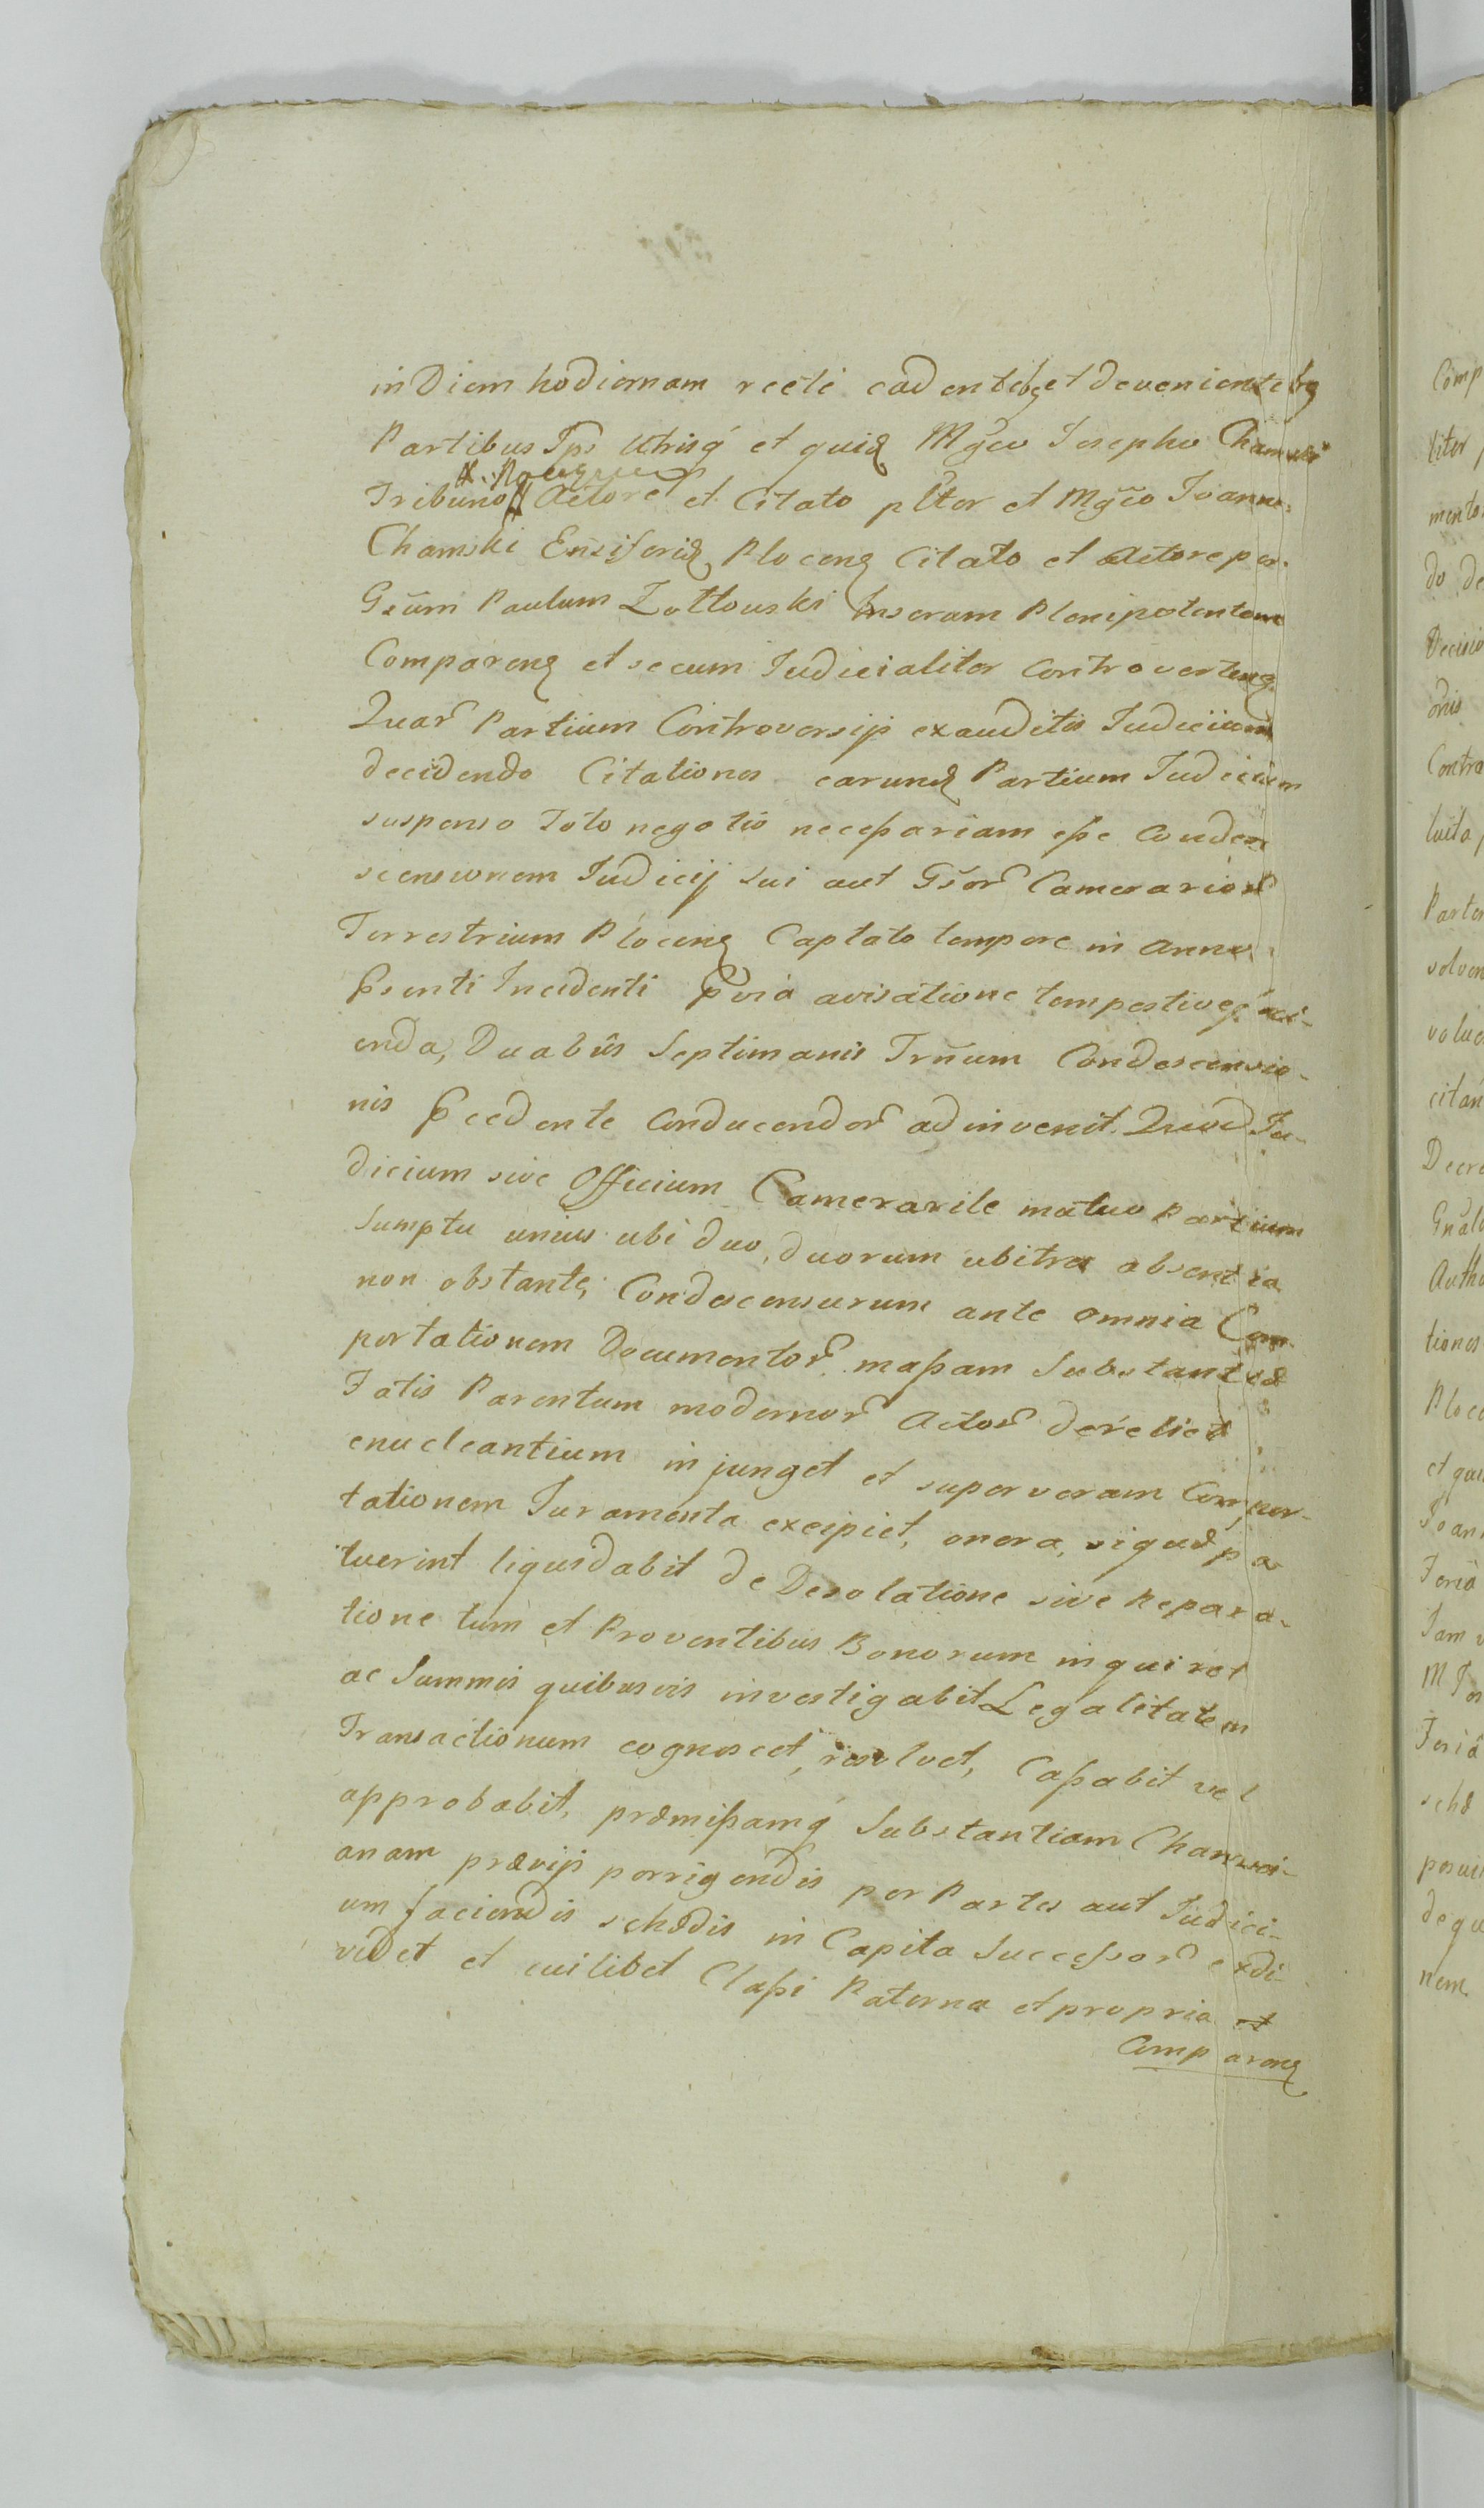 in Diem hodiernam recte cadentibꝫ et devenientibꝫ
Partibus Ips Utrisq́ et quidꝫ Mgco Josepho Chamski
Tribuno Actore et Citato pltor et Mgco Joanne
Chamski Ensiferidꝫ Plocenꝫ Citato et Actore per
Gsum Paulum Zottowski Plenipotentem
Comparenꝫ et secum Judicialiter Controvertenꝫ
Quar Partium Controversijs exauditis Judicium
decidendo Citationes earundꝫ Partium Judicium
suspenso Toto negotio necessariam esse Conden
scensionem Judicij sui aut Gsor Camerarior
Terrestrium Plocenꝫ Captato tempore in anno
Psenti Incidenti Pvia avisatione tempestive faci-
enda, Duabus Septimanis Trnum Condescensio-
nis Pcedente Conducendor adinvenit. Quod Ju-
dicium sive Officium Camerarile mutuo Partium
Sumptu unius ubi duo, duorum ubi tres absentia
non obstante, Condescensurum ante omnia Com
portationem Documentor massam Substantiæ
Fatis Parentum modernor Actor derelict
enucleantium injunget et super veram Compor-
tationem Juramenta excipiet, onera, siquæ pa
tuerint liquidabit de Desolatione sive Repara-
tione tum et Proventibus Bonorum inquiret
ac Summis quibusvis investigabit Legalitatem
Transactionum cognoscet, resolvet, Cassabit vel
approbabit, præmissamq́ Substantiam Chamsci-
anam prævijs porrigendis per Partes aut Judici-
um faciendis schædis in Capita Successor exdi-
videt et cuilibet Classi Paterna et propria et
Comparenꝫ
Comp
liter
mento
do de
Decisio
onis
Contro
luita
Parte
solven
citan
Decre
Gnal
Autho
tiones
Ploce
et qui
Joan
Feria
Jam
Feria
schæ
posui
de qu
nem